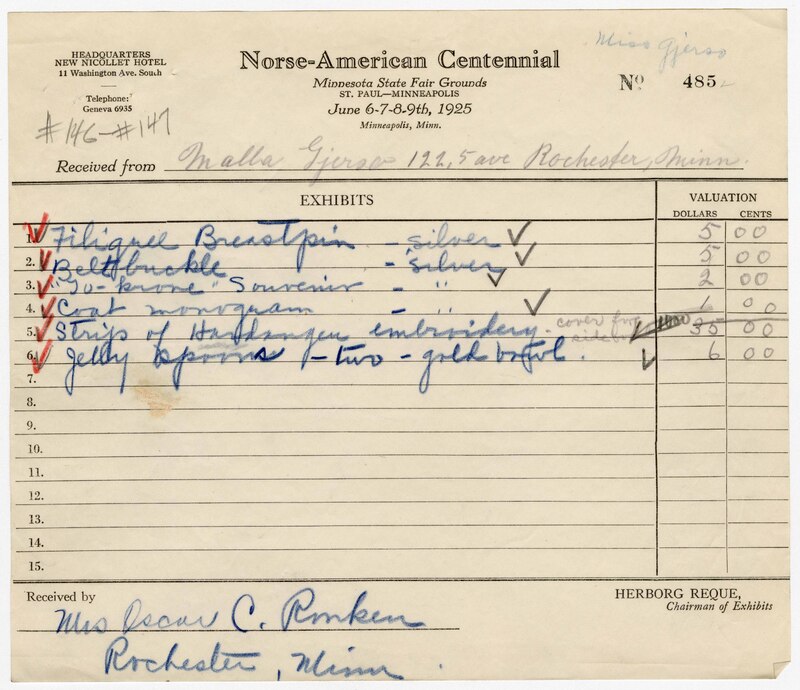 HEADQUARTERS
NEW NICOLLET HOTEL
11 Washington Ave. South
Telephone:
Geneva 6935
#146-#147
Norse-American Centennial
Minnesota State Fair Grounds
ST. PAUL—MINNEAPOLIS
June 6-7-8-9th, 1925
Minneapolis, Minn.
Miss Gjerso
Nº 485
Received from Malla Gjerso 122, 5 ave Rochester, Minn.
EXHIBITS VALUATION
DOLLARS CENTS
1. Filigree Breastpin - silver 5 00
2. Belt buckle - silver 5 00
3. "To-krone" Souvenir - " 2 00
4. Coat monogram - " 1 00
5. Strip of Hardanger embroidery - cover for 35 00
6. Jelly spoons - two - gold bowl. 6 00
7.
8.
9.
10.
11.
12.
13.
14.
15.
Received by
Mrs Oscar C. Ronken
Rochester, Minn.
HERBORG REQUE,
Chairman of Exhibits